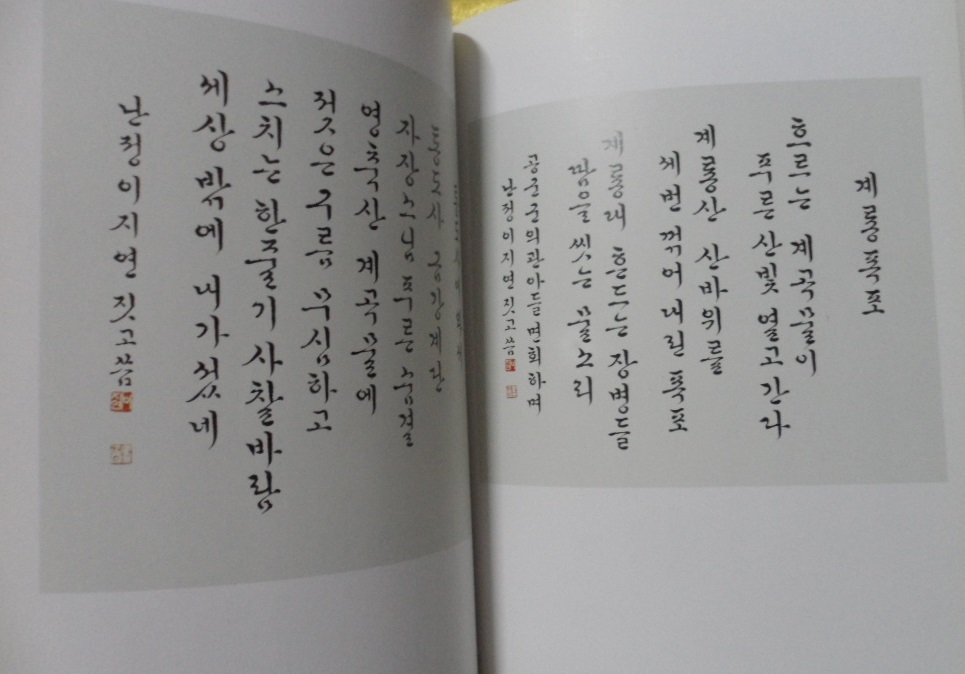 통도사 금강계단
자장스님 푸른 숨결
영축산 계곡물에
젖은 구름 무심하고
스치는 한줄기 사찰바람
세상 밖에 내가 섰네
난정 이지연 짓고 씀
계룡폭포
흐르는 계곡물이
푸른 산빛 열고 간다
계룡산 산바위를
세번 꺾어 내린 폭포
계룡대 흔드는 장병들
땀을 씻는 물소리
공군군의관 아들 면회하며
난정 이지연 짓고 씀